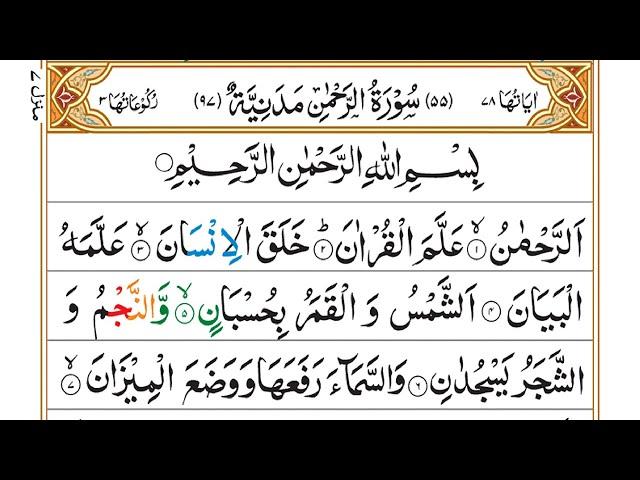 اٰيَاتُهَا ٧٨ (٥٥) سُوْرَةُ الرَّحْمٰنِ مَدَنِيَّةٌ (٩٧) رُكُوْعَاتُهَا ٣
منزل ٧
بِسْمِ اللهِ الرَّحْمٰنِ الرَّحِيْمِ۝
اَلرَّحْمٰنُ ۝١ۙ عَلَّمَ الْقُرْاٰنَ ۝٢ؕ خَلَقَ الْاِنْسَانَ ۝٣ۙ عَلَّمَهُ
الْبَيَانَ ۝٤ اَلشَّمْسُ وَ الْقَمَرُ بِحُسْبَانٍ ۝٥ۙ وَّالنَّجْمُ وَ
الشَّجَرُ يَسْجُدٰنِ ۝٦ وَالسَّمَآءَ رَفَعَهَا وَوَضَعَ الْمِيْزَانَ ۝٧ۙ